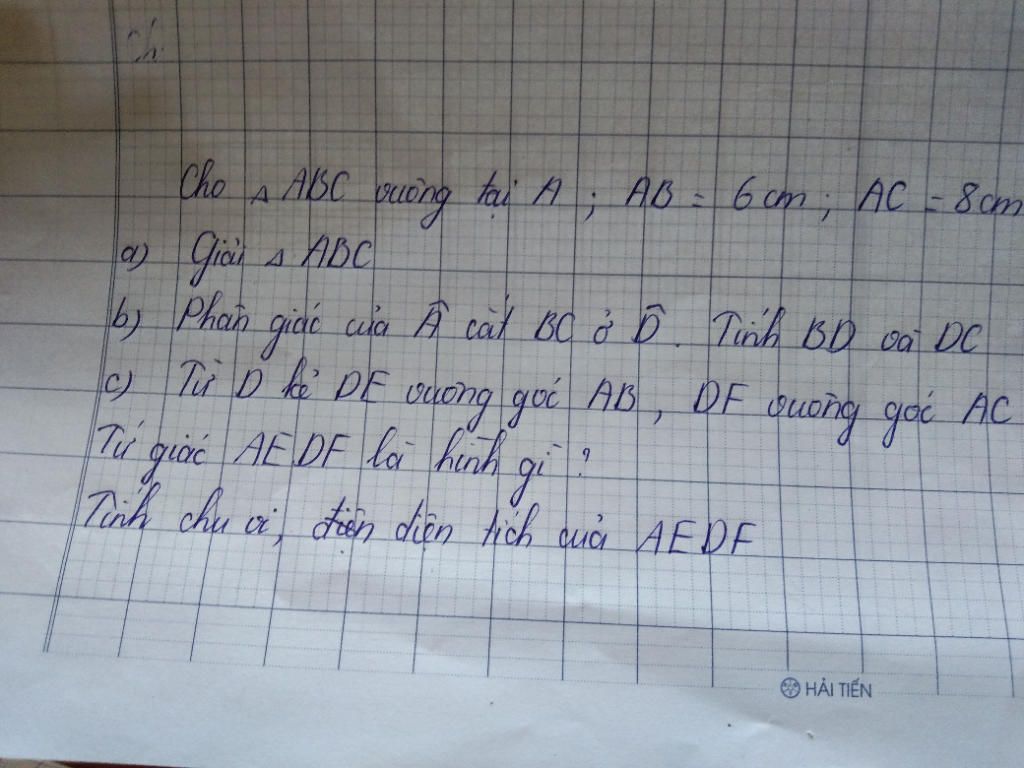 Cho △ ABC vuông tại A ; AB = 6cm ; AC = 8cm
a) Giải △ ABC
b) Phân giác của Â cắt BC ở D. Tính BD và DC
c) Từ D kẻ DE vuông góc AB, DF vuông góc AC
Tứ giác AEDF là hình gì ?
Tính chu vi, diện tích của AEDF
HẢI TIẾN